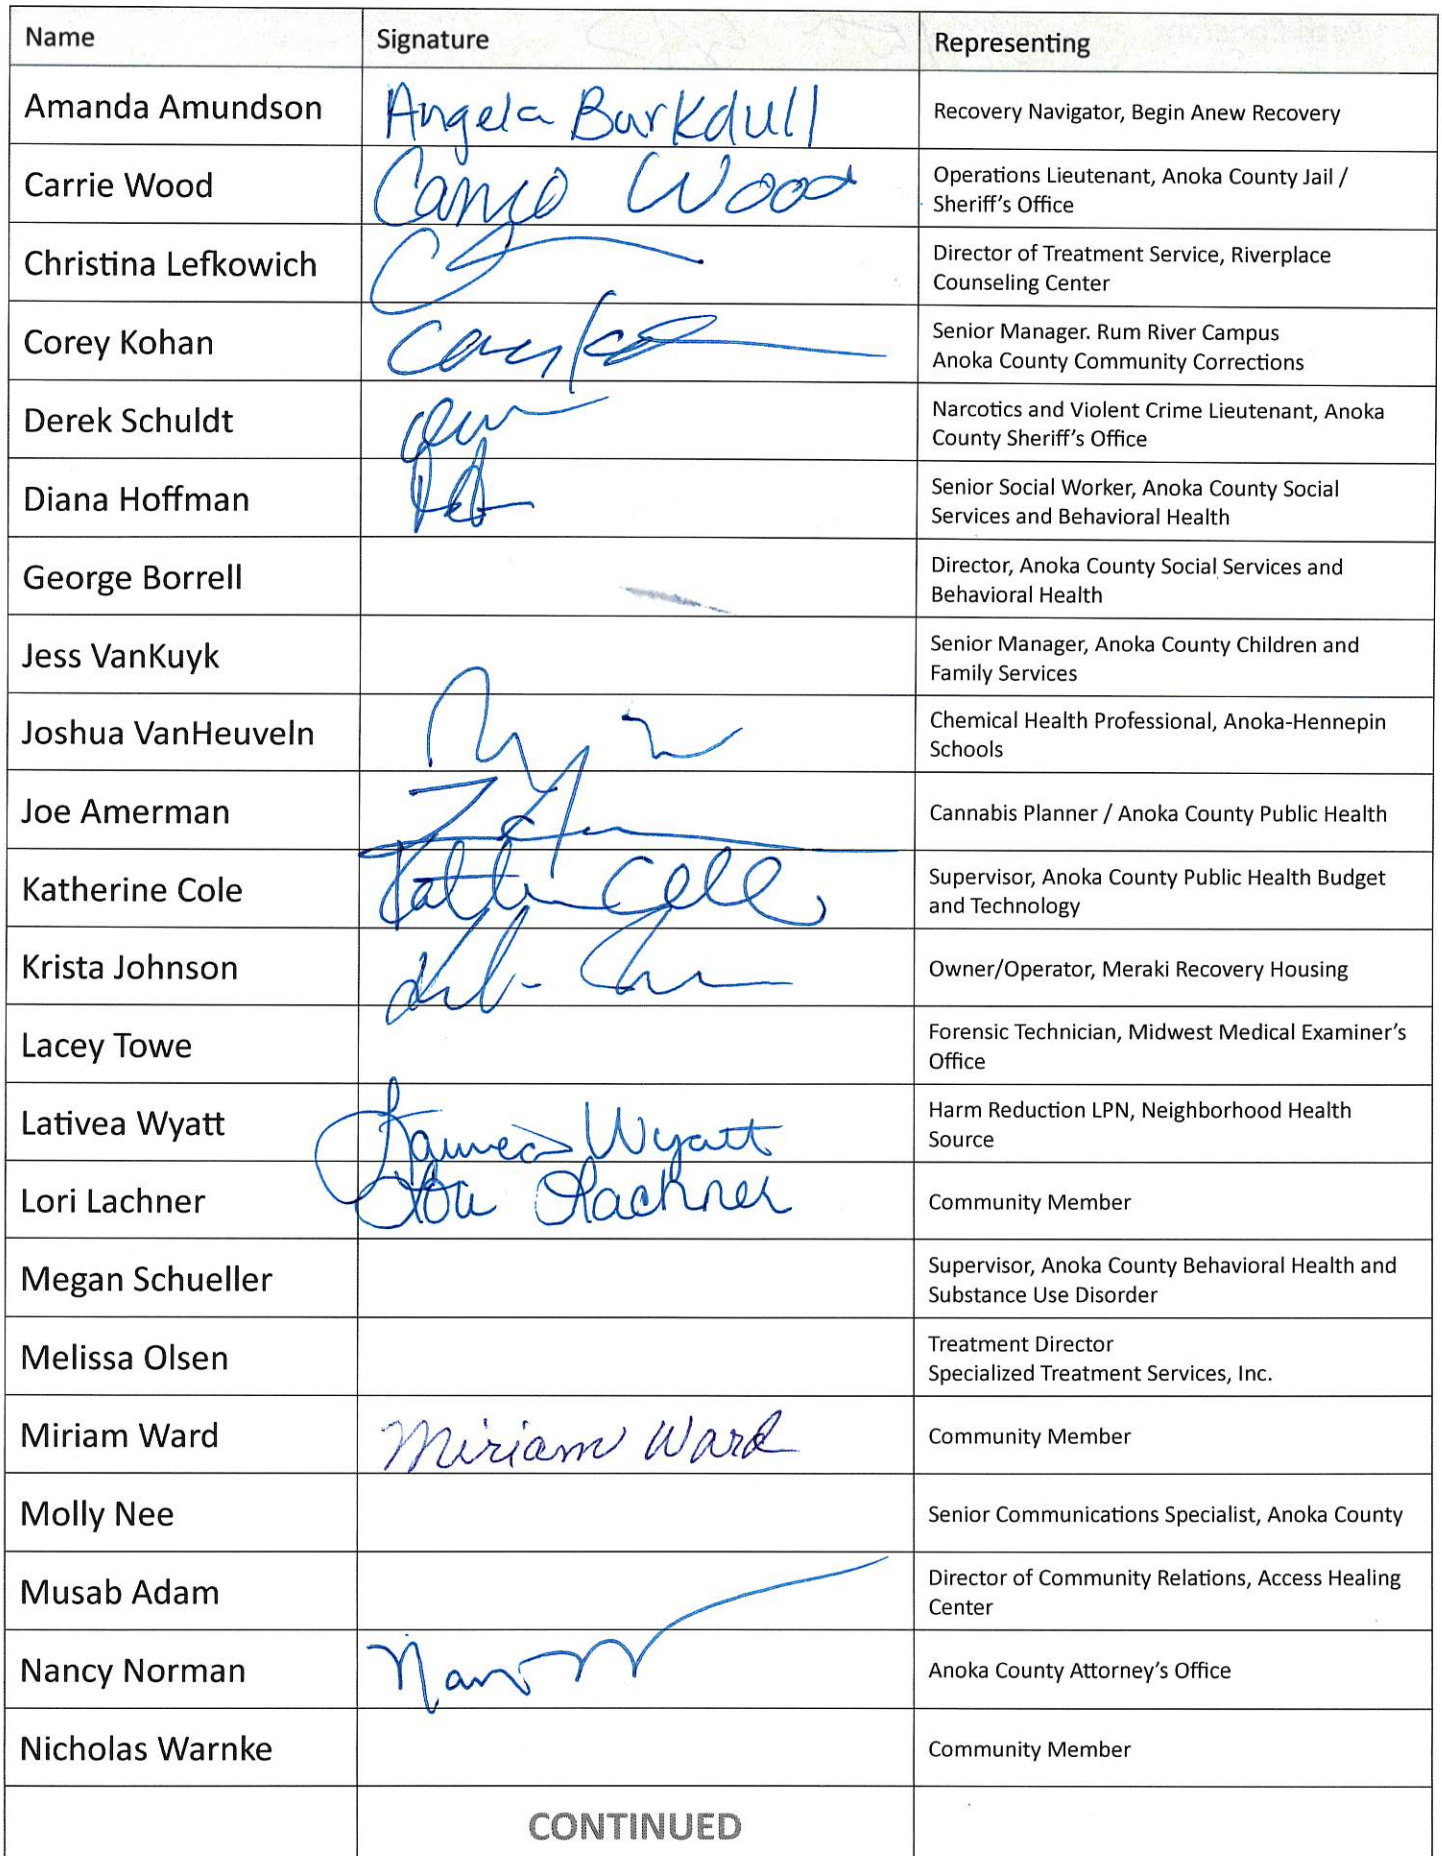 Name Signature Representing
Amanda Amundson Angela Burkdull Recovery Navigator, Begin Anew Recovery
Carrie Wood Carrie Wood Operations Lieutenant, Anoka County Jail /
Sheriff's Office
Christina Lefkowich Director of Treatment Service, Riverplace
Counseling Center
Corey Kohan Senior Manager. Rum River Campus
Anoka County Community Corrections
Derek Schuldt Narcotics and Violent Crime Lieutenant, Anoka
County Sheriff's Office
Diana Hoffman Senior Social Worker, Anoka County Social
Services and Behavioral Health
George Borrell Director, Anoka County Social Services and
Behavioral Health
Jess VanKuyk Senior Manager, Anoka County Children and
Family Services
Joshua VanHeuveln Chemical Health Professional, Anoka-Hennepin
Schools
Joe Amerman Cannabis Planner / Anoka County Public Health
Katherine Cole Supervisor, Anoka County Public Health Budget
and Technology
Krista Johnson Owner/Operator, Meraki Recovery Housing
Lacey Towe Forensic Technician, Midwest Medical Examiner's
Office
Lativea Wyatt Wyatt Harm Reduction LPN, Neighborhood Health
Source
Lori Lachner Lori Lachner Community Member
Megan Schueller Supervisor, Anoka County Behavioral Health and
Substance Use Disorder
Melissa Olsen Treatment Director
Specialized Treatment Services, Inc.
Miriam Ward Miriam Ward Community Member
Molly Nee Senior Communications Specialist, Anoka County
Musab Adam Director of Community Relations, Access Healing
Center
Nancy Norman Anoka County Attorney's Office
Nicholas Warnke Community Member
CONTINUED